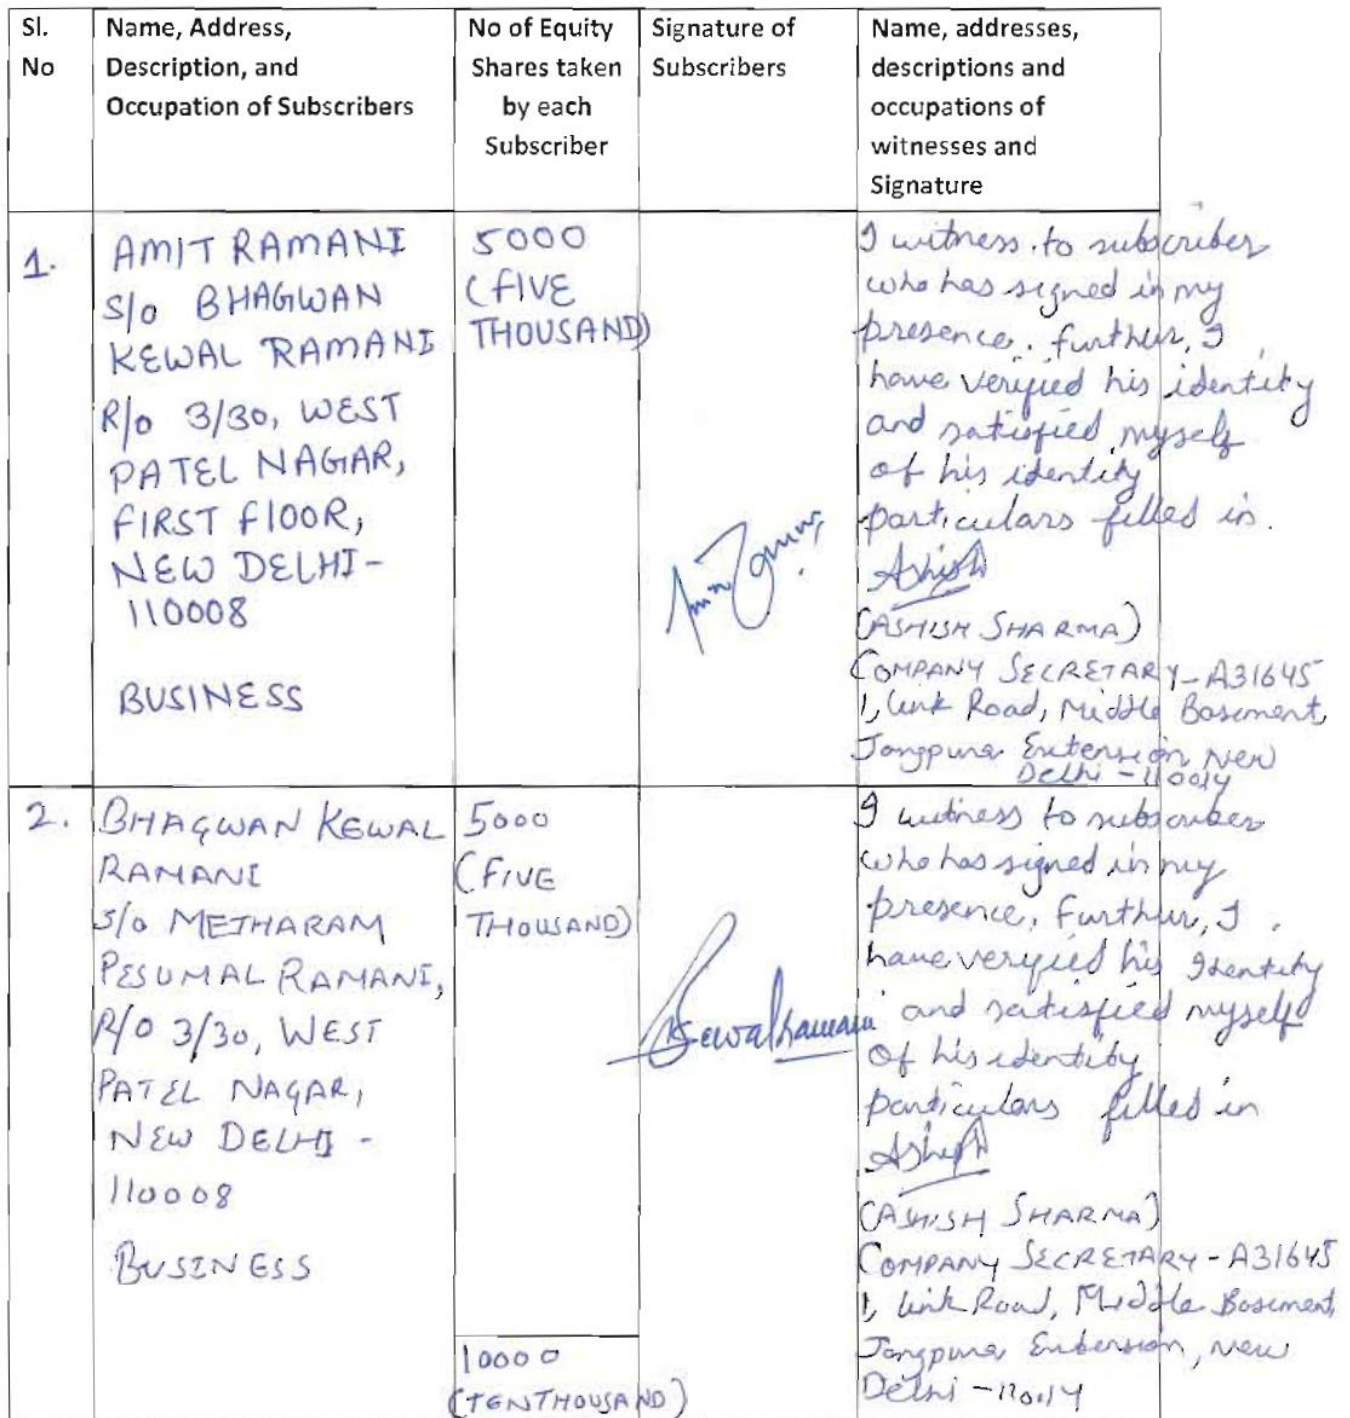 Sl. No
Name, Address, Description, and Occupation of Subscribers
No of Equity Shares taken by each Subscriber
Signature of Subscribers
Name, addresses, descriptions and occupations of witnesses and Signature
1.
AMIT RAMANI
S/o BHAGWAN
KEWAL RAMANI
R/o 3/30, WEST
PATEL NAGAR,
FIRST FlOOR,
NEW DELHI-
110008
BUSINESS
5000
(FIVE
THOUSAND)
I witness to subscriber
who has signed in my
presence. further, I
have verified his identity
and satisfied myself
of his identity
particulars filled in.
Ashish
(ASHISH SHARMA)
COMPANY SECRETARY-A31645
1, Link Road, Middle Basement,
Jangpura Extension New
Delhi-110014
2.
BHAGWAN KEWAL
RAMANI
S/o METHARAM
PESUMAL RAMANI,
R/O 3/30, WEST
PATEL NAGAR,
NEW DELHI -
110008
BUSINESS
5000
(FIVE
THOUSAND)
Kewalramani
I witness to subscriber
who has signed in my
presence. Further, I
have verified his Identity
and satisfied myself
of his identity
particulars filled in
Ashish
(ASHISH SHARMA)
COMPANY SECRETARY-A31645
1, Link Road, Middle Basement,
Jangpura Extension, New
Delhi-110014
10000
(TEN THOUSAND)